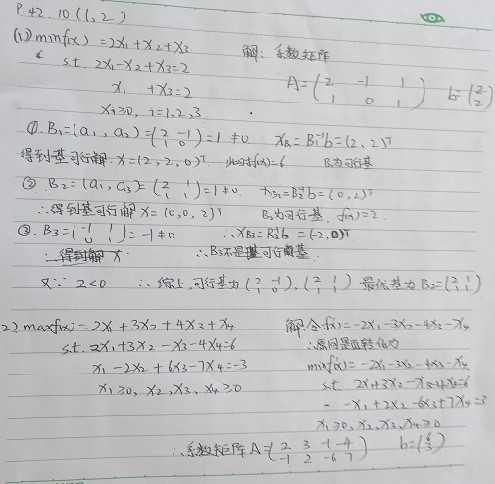 P.42. 10 (1, 2)
(1) min f(x) = 2x₁ + x₂ + x₃ 解: 系数矩阵
s.t. 2x₁ - x₂ + x₃ = 2 A = (2 -1 1
x₁ + x₃ = 2 1 0 1) b = (2 2)
xᵢ ≥ 0, i = 1, 2, 3
①. B₁ = (a₁, a₂) = (2 -1 1 0) = 1 ≠ 0 x_B₁ = B₁⁻¹b = (2, 2)ᵀ
得到基可行解: x = (2, 2, 0)ᵀ, 此时f(x) = 6 B₁为可行基
② B₂ = (a₁, a₃) = (2 1 1 1) = 1 ≠ 0. x_B₂ = B₂⁻¹b = (0, 2)ᵀ
∴得到基可行解 x = (0, 0, 2)ᵀ B₂为可行基, f(x) = 2.
③. B₃ = (-1 1 0 1) = -1 ≠ 0 ∴x_B₃ = B₃⁻¹b = (-2, 0)ᵀ
∴得到解 x ∴B₃不是可行基.
又∵ 2 < 0 ∴综上, 可行基为 (2 -1 1 0), (2 1 1 1) 最优基为 B₂ = (2 1 1 1)
(2) max f(x) = 2x₁ + 3x₂ + 4x₃ + x₄ 解 令 f(x) = -2x₁ - 3x₂ - 4x₃ - x₄
s.t. 2x₁ + 3x₂ - x₃ - 4x₄ = 6 ∴原问题转化为
x₁ - 2x₂ + 6x₃ - 7x₄ = -3 min f(x) = -2x₁ - 3x₂ - 4x₃ - x₄
x₁ ≥ 0, x₂, x₃, x₄ ≥ 0 s.t. 2x₁ + 3x₂ - x₃ - 4x₄ = 6
-x₁ + 2x₂ - 6x₃ + 7x₄ = 3
x₁ ≥ 0, x₂, x₃, x₄ ≥ 0
∴系数矩阵 A = (2 3 -1 -4 -1 2 -6 7) b = (6 3)